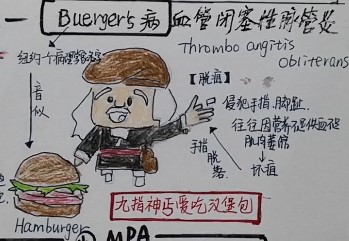 一 Buerger's病 血管闭塞性脉管炎
Thrombo angitis
obliterans
纽约一个病理学家
【脱疽】
音似
侵犯手指、脚趾
往往因营养不足供血不足
肌肉萎缩
坏疽
手指
脱落
九指神丐爱吃汉堡包
Hamburger
MPA